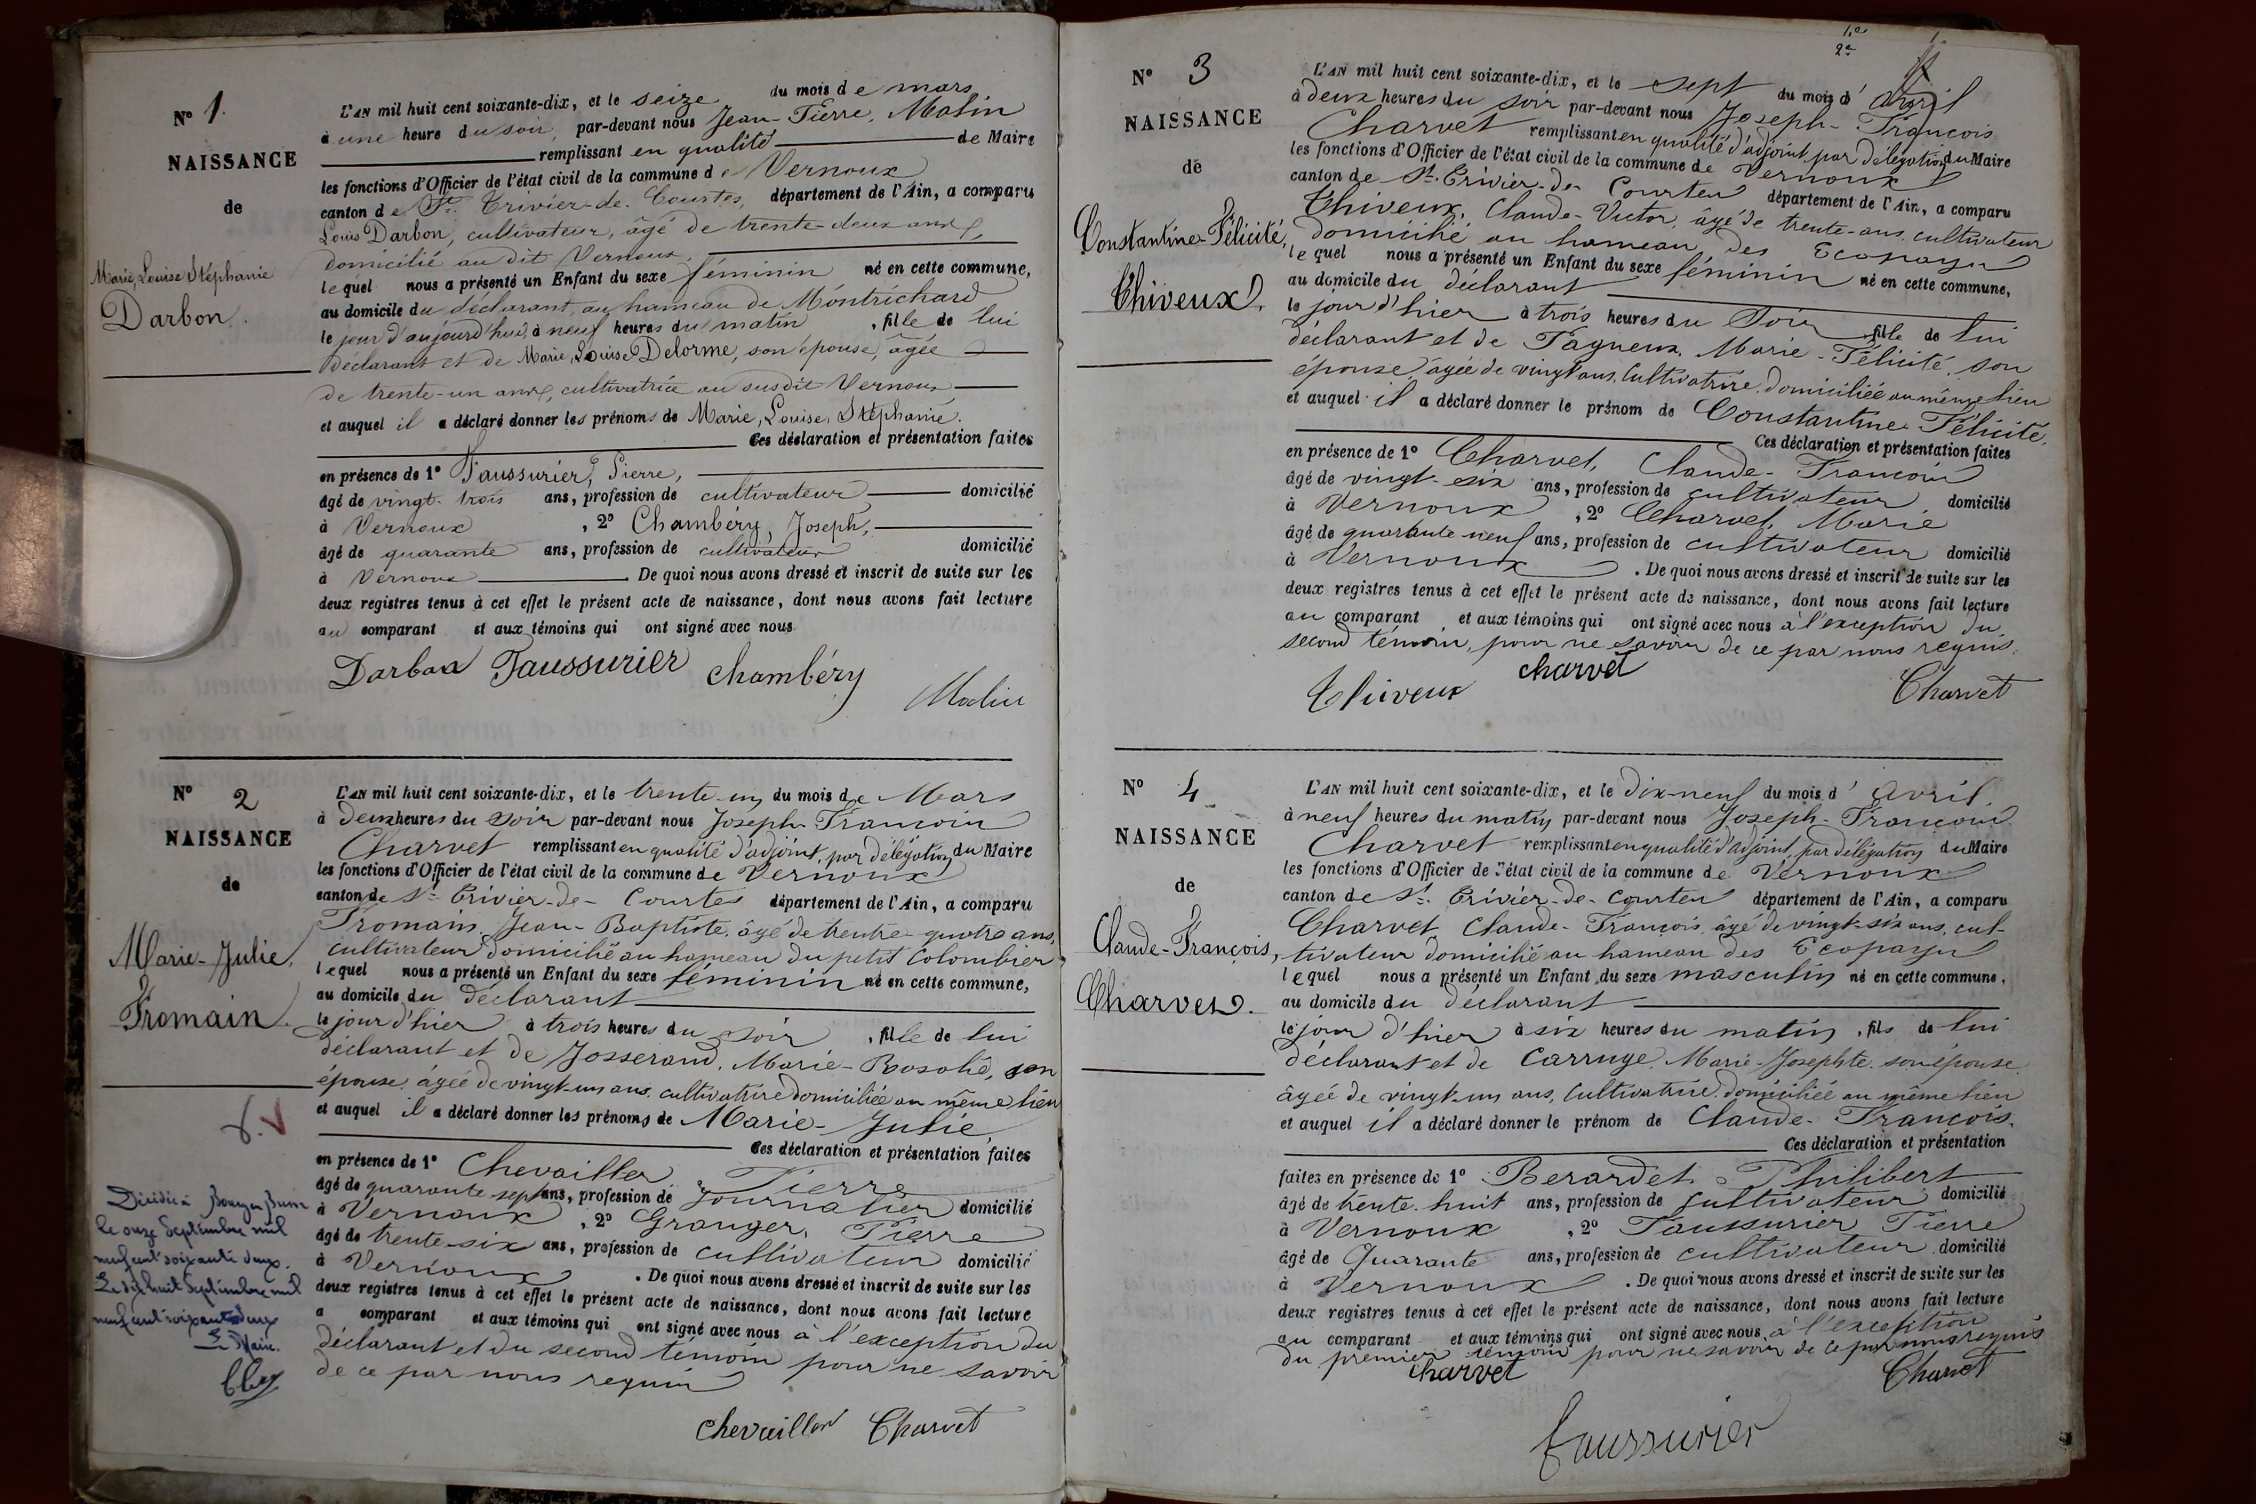 N° 1.
NAISSANCE
de
Marie, Louise Stéphanie
Darbon.
L'AN mil huit cent soixante-dix, et le seize du mois de mars
à une heure du soir, par-devant nous Jean-Pierre, Matin
remplissant en qualité de Maire
les fonctions d'Officier de l'état civil de la commune de Vernoux
canton de St. Trivier-de-Courtes, département de l'Ain, a comparu
Louis Darbon, cultivateur, âgé de trente-deux ans,
domicilié au dit Vernoux,
lequel nous a présenté un Enfant du sexe féminin né en cette commune,
au domicile du déclarant, au hameau de Montrichard
le jour d'aujourd'hui, à neuf heures du matin, fille de lui
déclarant et de Marie, Louise Delorme, son épouse, âgée
de trente-un ans, cultivatrice au susdit Vernoux
et auquel il a déclaré donner les prénoms de Marie, Louise, Stéphanie.
Ces déclaration et présentation faites
en présence de 1° Faussurier, Pierre,
âgé de vingt-trois ans, profession de cultivateur domicilié
à Vernoux, 2° Chambéry, Joseph,
âgé de quarante ans, profession de cultivateur domicilié
à Vernoux. De quoi nous avons dressé et inscrit de suite sur les
deux registres tenus à cet effet le présent acte de naissance, dont nous avons fait lecture
au comparant et aux témoins qui ont signé avec nous
Darbon Faussurier Chambéry
N° 2
NAISSANCE
de
Marie-Julie,
Fromain.
Décédée à Bourg en Bresse
le onze Septembre mil
neuf cent soixante deux.
Le dix huit Septembre mil
neuf cent soixante deux
Le Maire.
L'AN mil huit cent soixante-dix, et le trente-un du mois de Mars
à Deux heures du Soir par-devant nous Joseph-Francois
Charvet remplissant en qualité d'adjoint, par délégation du Maire
les fonctions d'Officier de l'état civil de la commune de Vernoux
canton de St-Trivier-de-Courtes département de l'Ain, a comparu
Fromain, Jean-Baptiste, âgé de trente-quatre ans,
cultivateur domicilié au hameau du petit Colombier
lequel nous a présenté un Enfant du sexe féminin né en cette commune,
au domicile du déclarant
le jour d'hier à trois heures du soir, fille de lui
déclarant et de Josserand, Marie-Rosalie, son
épouse, âgée de vingt-un ans, cultivatrice domiciliée au même lieu
et auquel il a déclaré donner les prénoms de Marie-Julie,
Ces déclaration et présentation faites
en présence de 1° Chevailler, Pierre
âgé de quarante-sept ans, profession de Journalier domicilié
à Vernoux, 2° Granger, Pierre
âgé de trente-six ans, profession de cultivateur domicilié
à Vernoux. De quoi nous avons dressé et inscrit de suite sur les
deux registres tenus à cet effet le présent acte de naissance, dont nous avons fait lecture
a comparant et aux témoins qui ont signé avec nous à l'exception du
déclarant et du second témoin pour ne savoir
de ce par nous requis
Chevailler Charvet
1°
2°
N° 3
NAISSANCE
de
Constantine-Félicité,
Thiveux.
L'AN mil huit cent soixante-dix, et le sept du mois d'avril
à deux heures du soir par-devant nous Joseph-François
Charvet remplissant en qualité d'adjoint par délégation du Maire
les fonctions d'Officier de l'état civil de la commune de Vernoux
canton de St. Trivier-de-Courtes département de l'Ain, a comparu
Thiveux, Claude-Victor, âgé de trente-ans cultivateur
domicilié au hameau des Ecopayes
lequel nous a présenté un Enfant du sexe féminin né en cette commune,
au domicile du déclarant
le jour d'hier à trois heures du Soir fille de lui
déclarant et de Pagneux, Marie-Félicité, son
épouse, âgée de vingt ans, Cultivatrice domiciliée au même lieu
et auquel il a déclaré donner le prénom de Constantine-Félicité.
Ces déclaration et présentation faites
en présence de 1° Charvet, Claude-Francois
âgé de vingt-six ans, profession de cultivateur domicilié
à Vernoux, 2° Charvet, Marie
âgé de quarante neuf ans, profession de cultivateur domicilié
à Vernoux. De quoi nous avons dressé et inscrit de suite sur les
deux registres tenus à cet effet le présent acte de naissance, dont nous avons fait lecture
au comparant et aux témoins qui ont signé avec nous à l'exception du
second témoin, pour ne savoir de ce par nous requis.
Thiveux Charvet Charvet
N° 4
NAISSANCE
de
Claude-François,
Charvet.
L'AN mil huit cent soixante-dix, et le dix-neuf du mois d'avril,
à neuf heures du matin par-devant nous Joseph-Francois
Charvet remplissant en qualité d'adjoint, par délégation du Maire
les fonctions d'Officier de l'état civil de la commune de Vernoux
canton de St. Trivier-de-Courtes département de l'Ain, a comparu
Charvet, Claude-François, âgé de vingt-six ans, cul-
tivateur domicilié au hameau des Ecopayes
lequel nous a présenté un Enfant du sexe masculin né en cette commune,
au domicile du déclarant
le jour d'hier à six heures du matin, fils de lui
déclarant et de Carruge, Marie-Josephte, son épouse
âgée de vingt-un ans, Cultivatrice, domiciliée au même lieu
et auquel il a déclaré donner le prénom de Claude-François.
Ces déclaration et présentation
faites en présence de 1° Berardet, Philibert
âgé de trente-huit ans, profession de Cultivateur domicilié
à Vernoux, 2° Faussurier Pierre
âgé de Quarante ans, profession de cultivateur domicilié
à Vernoux. De quoi nous avons dressé et inscrit de suite sur les
deux registres tenus à cet effet le présent acte de naissance, dont nous avons fait lecture
au comparant et aux témoins qui ont signé avec nous, à l'exception
du premier témoin pour ne savoir de ce par nous requis
Charvet Charvet
Faussurier